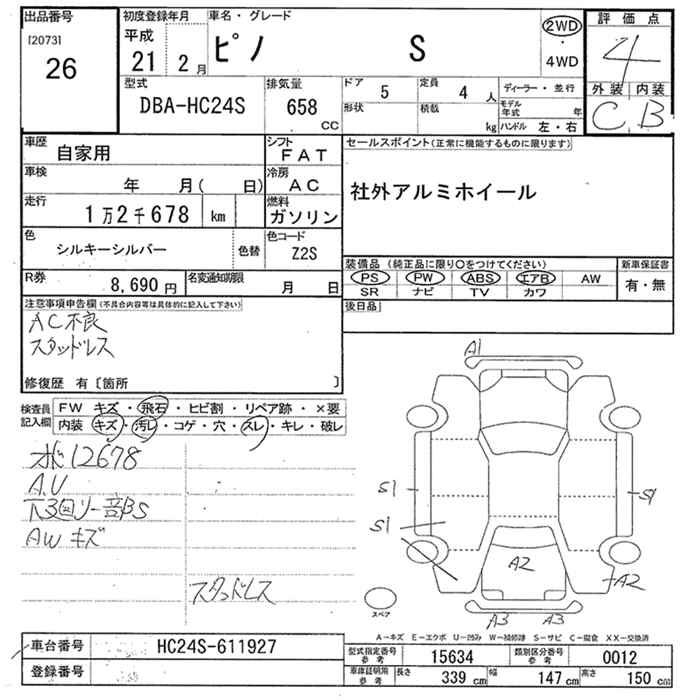 出品番号 初度登録年月 車名・グレード 2WD 評価点
[2073] 平成 ピノ S ・ 4
26 21 2月 4WD
型式 排気量 ドア 5 定員 4人 ディーラー・並行 外装 内装
DBA-HC24S 658 CC 形状 積載 kg モデル年式 年 C B
ハンドル 左・右
車歴 自家用 シフト FAT セールスポイント(正常に機能するものに限ります)
車検 年 月( 日) 冷房 AC 社外アルミホイール
走行 1万2千678 km 燃料 ガソリン
色 シルキーシルバー 色替 色コード Z2S
装備品(純正品に限り○をつけてください) 新車保証書
R券 8,690円 名変通知期限 月 日 PS PW ABS エアB AW 有・無
SR ナビ TV カワ
注意事項申告欄(不具合内容等は具体的に記入して下さい) 後日品
AC不良
スタッドレス
修復歴 有〔箇所 〕
検査員記入欄 FW キズ・飛石・ヒビ割・リペア跡・×要
内装 キズ・汚レ・コゲ・穴・スレ・キレ・破レ
12678
A.U
下回り一部BS
AWキズ
スタッドレス
A1
S1 S1
S1
A2 A2
スペア A3 A3
A-キズ E-エクボ U-凹み W-補修跡 S-サビ C-腐食 XX-交換済
車台番号 HC24S-611927 型式指定番号 参考 15634 類別区分番号 参考 0012
登録番号 車庫証明用 参考 長さ 339 cm 幅 147 cm 高さ 150 cm